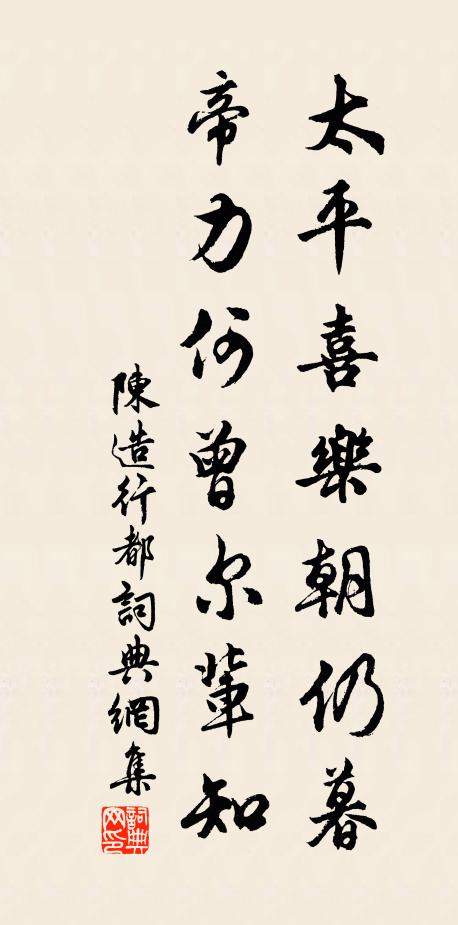 太平喜樂朝仍暮
帝力何曾尔輩知
陳造行都詞典網集
詞典
网印